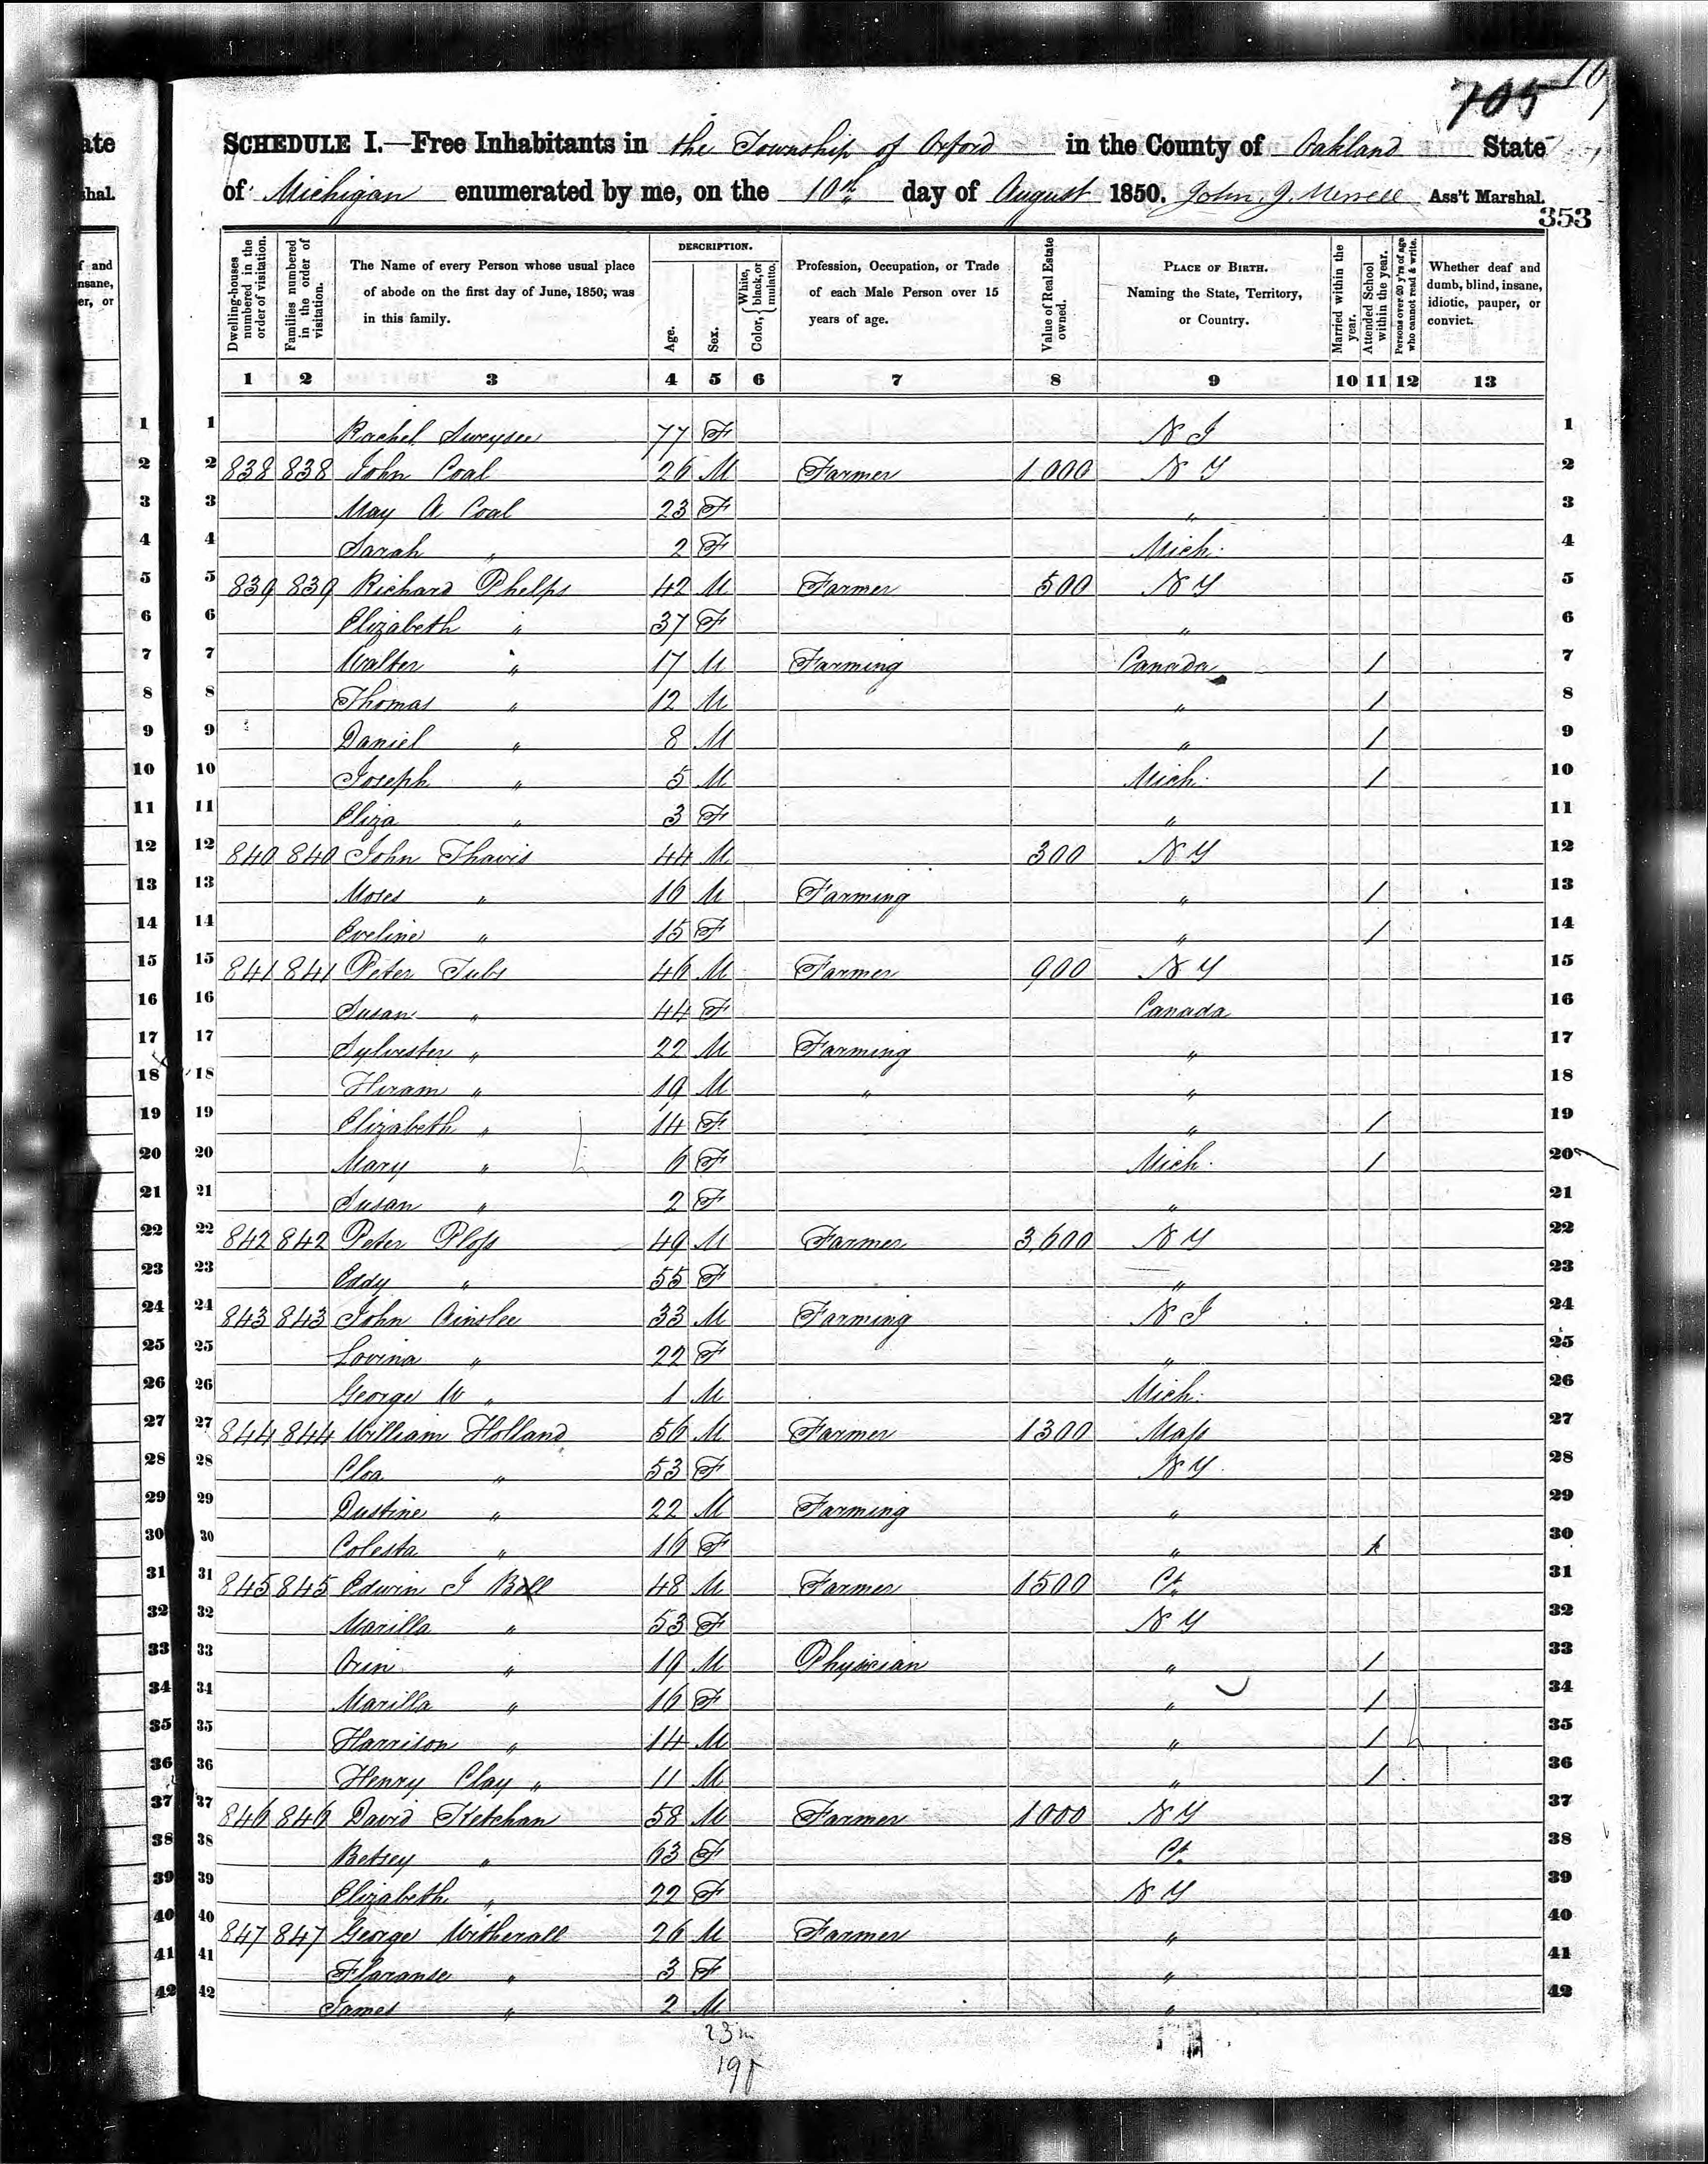 705
SCHEDULE I.—Free Inhabitants in the Township of Oxford in the County of Oakland State
of Michigan enumerated by me, on the 10th day of August 1850. John J. Merrell Ass't Marshal.
353
Dwelling-houses numbered in the order of visitation. Families numbered in the order of visitation. The Name of every Person whose usual place of abode on the first day of June, 1850, was in this family. DESCRIPTION. Age. Sex. Color, {White, black, or mulatto. Profession, Occupation, or Trade of each Male Person over 15 years of age. Value of Real Estate owned. PLACE OF BIRTH. Naming the State, Territory, or Country. Married within the year. Attended School within the year. Persons over 20 y'rs of age who cannot read & write. Whether deaf and dumb, blind, insane, idiotic, pauper, or convict.
1 2 3 4 5 6 7 8 9 10 11 12 13
1 Rachel Sweysee 77 F N J 1
2 838 838 John Coal 26 M Farmer 1000 N Y 2
3 May A Coal 23 F " 3
4 Sarah " 2 F Mich. 4
5 839 839 Richard Phelps 42 M Farmer 500 N Y 5
6 Elizabeth " 37 F " 6
7 Walter " 17 M Farming Canada 1 7
8 Thomas " 12 M " 1 8
9 Daniel " 8 M " 1 9
10 Joseph " 5 M Mich. 1 10
11 Eliza " 3 F " 11
12 840 840 John Thavis 44 M 300 N Y 12
13 Moses " 16 M Farming " 1 13
14 Eveline " 15 F " 1 14
15 841 841 Peter Tubs 46 M Farmer 900 N Y 15
16 Susan " 44 F Canada 16
17 Sylvester " 22 M Farming " 17
18 Hiram " 19 M " " 18
19 Elizabeth " 14 F " 1 19
20 Mary " 6 F Mich. 1 20
21 Susan " 2 F " 21
22 842 842 Peter Ploss 49 M Farmer 3,600 N Y 22
23 Eddy " 55 F " 23
24 843 843 John Ainslee 33 M Farming N J 24
25 Lovina " 22 F " 25
26 George W " 1 M Mich. 26
27 844 844 William Holland 56 M Farmer 1300 Mass 27
28 Cloa " 53 F N Y. 28
29 Dustine " 22 M Farming " 29
30 Colesta " 16 F " 1 30
31 845 845 Edwin J Bell 48 M Farmer 1500 Ct. 31
32 Marilla " 53 F N Y 32
33 Orin " 19 M Physician " 1 33
34 Marilla " 16 F " 1 34
35 Harrison " 14 M " 1 35
36 Henry Clay " 11 M " 1 36
37 846 846 David Ketchan 58 M Farmer 1000 N Y 37
38 Betsey " 63 F Ct. 38
39 Elizabeth " 22 F N Y 39
40 847 847 George Witherall 26 M Farmer " 40
41 Floranse " 3 F " 41
42 James " 2 M " 42
23 m
19 f